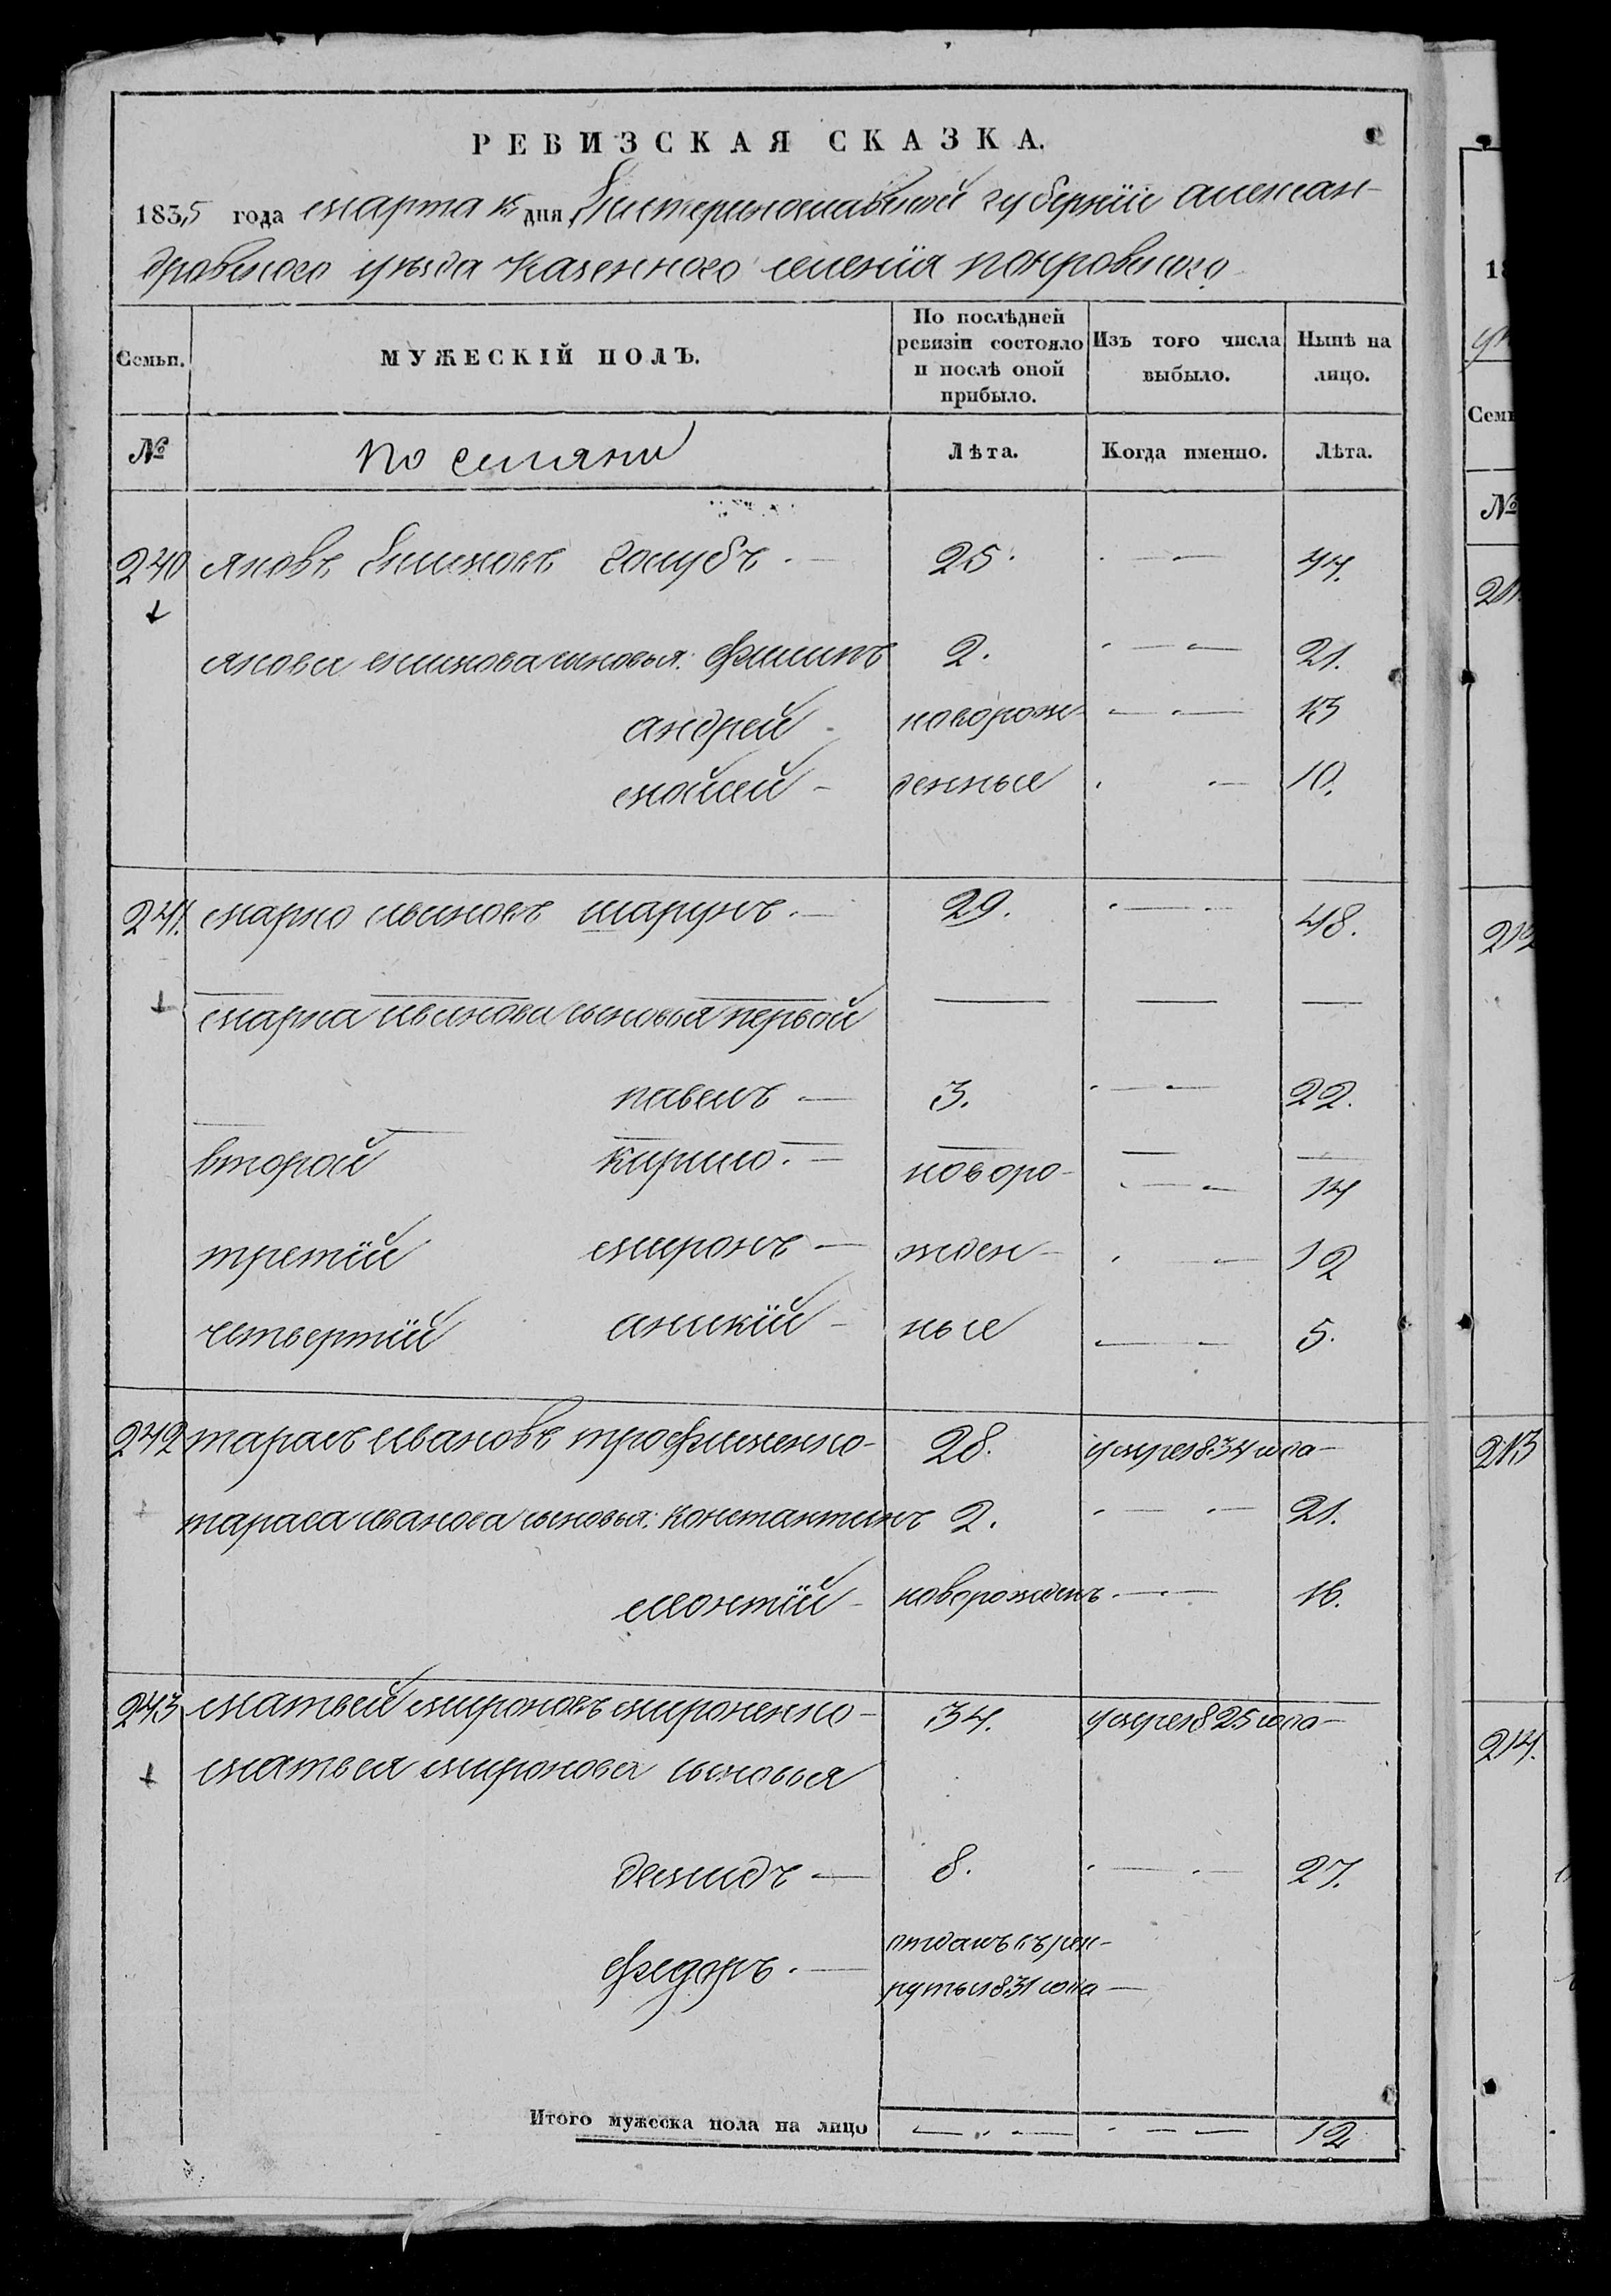 РЕВИЗСКАЯ СКАЗКА.
1835 года марта дня Екатеринославской губернїи алексан-
дровского уѣзда казенного селенїя покровского
Семьи.
МУЖЕСКІЙ ПОЛЪ.
По послѣдней ревизіи состояло и послѣ оной прибыло.
Изъ того числа выбыло.
Нынѣ на лицо.
№
поселяни
Лѣта.
Когда именно.
Лѣта.
240 яковъ Акимовъ голубъ. — 25. . — — 44.
якова акимова сыновья: филипъ 2. . — — 21.
андрей - новорож- — — 13
мойсей - денные . — 10.
241. марко ивановъ шарунъ. — 29. . — — 48.
марка иванова сыновья первой — — —
павелъ — 3. . — — 22.
второй кирило. — новоро- . — — 14
третїй миронъ — жден- . — 12
четвертїй аникїй - ные — — 5.
242 тарасъ ивановъ трофименко- 28. умре 1834 года —
тараса иванова сыновья: константинъ 2. . — — 21.
леонтїй - новорожденъ . — — 16.
243 матвей мироновъ мироненко - 34. умре 1825 года —
матвея миронова сыновья
демидъ — 8. . — — 27.
федоръ. — отданъ въ рек-
руты 1831 года —
Итого мужеска пола на лицо — . . — . — — 12
18
Семь
№
211
212
213
214.